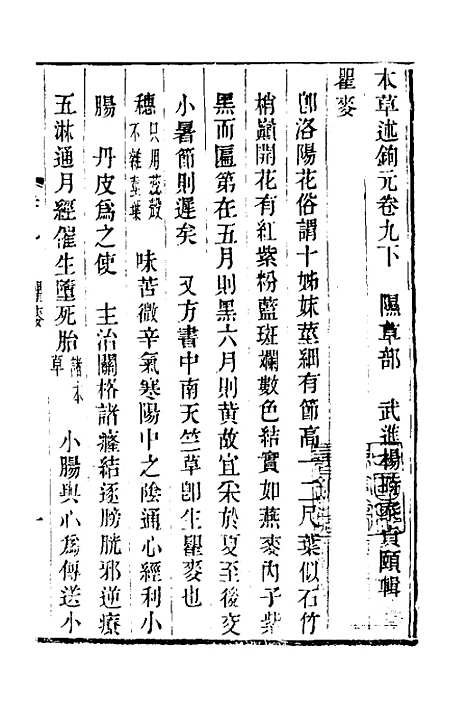 本草述鉤元卷九下　隰草部　武進楊時泰貞頤輯
瞿麥
卽洛陽花俗謂十姊妹莖細有節高一二尺葉似石竹
梢巔開花有紅紫粉藍斑斕數色結實如燕麥內子紫
黑而匾第在五月則黑六月則黄故宜采於夏至後交
小暑節則遲矣　又方書中南天竺草卽生瞿麥也
穗只用蕊殼不雜莖葉　味苦微辛氣寒陽中之陰通心經利小
腸　丹皮爲之使　主治關格諸癃結逐膀胱邪逆療
五淋通月經催生墮死胎諸本草　小腸與心爲傳送小
卷九　瞿麥　一